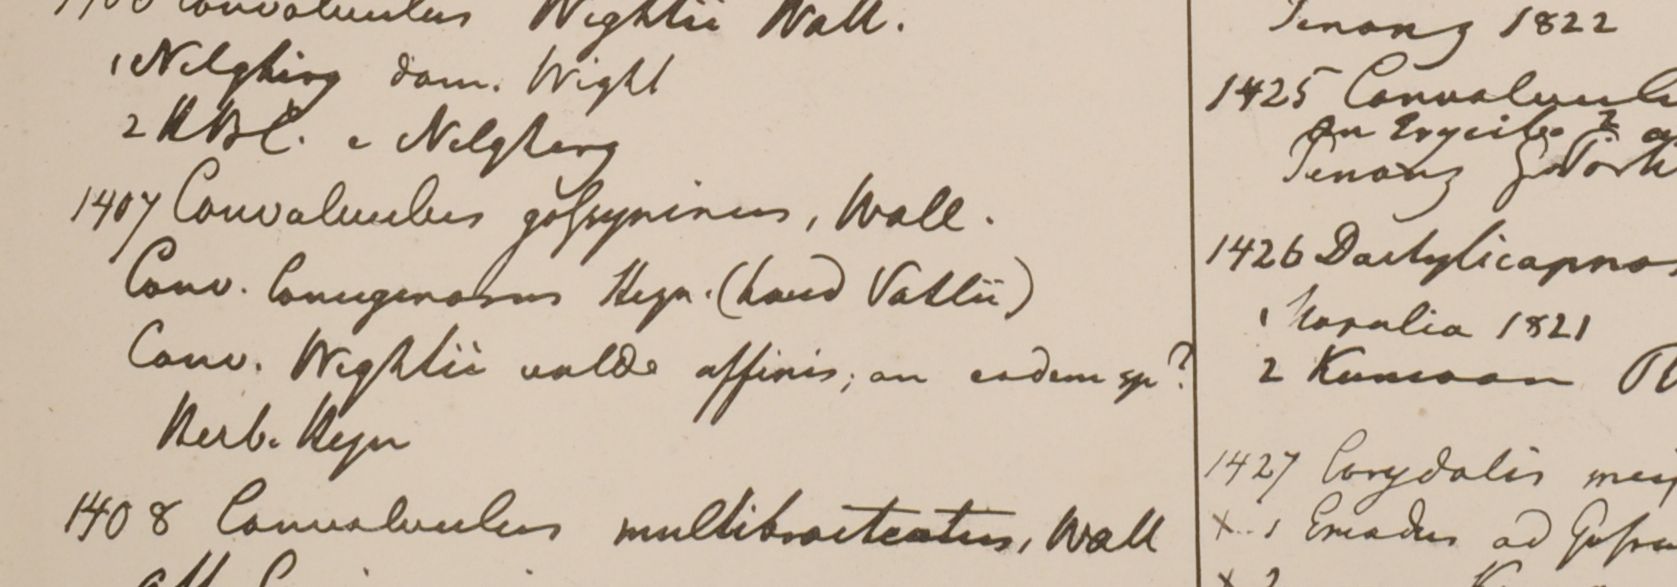 Convolvulus Wightii Wall.
1 Nelgherg dom. Wight
2 HBC. e Nelgherg
1407 Convolvulus gossypinus, Wall.
Conv. Heyn. (haud Vahlii)
Conv. Wightii valde affinis; an eadem sp?
Herb. Heyn
1408 Convolvulus multibracteatus, Wall
Penang 1822
1425 Convolvulu
an Erycibe
Penang G. Port
1426 Dactylicapnos
1 Noralia 1821
2 Kumaon
1427 Corydalis mei
x 1 Emodus ad Gosa
x 2